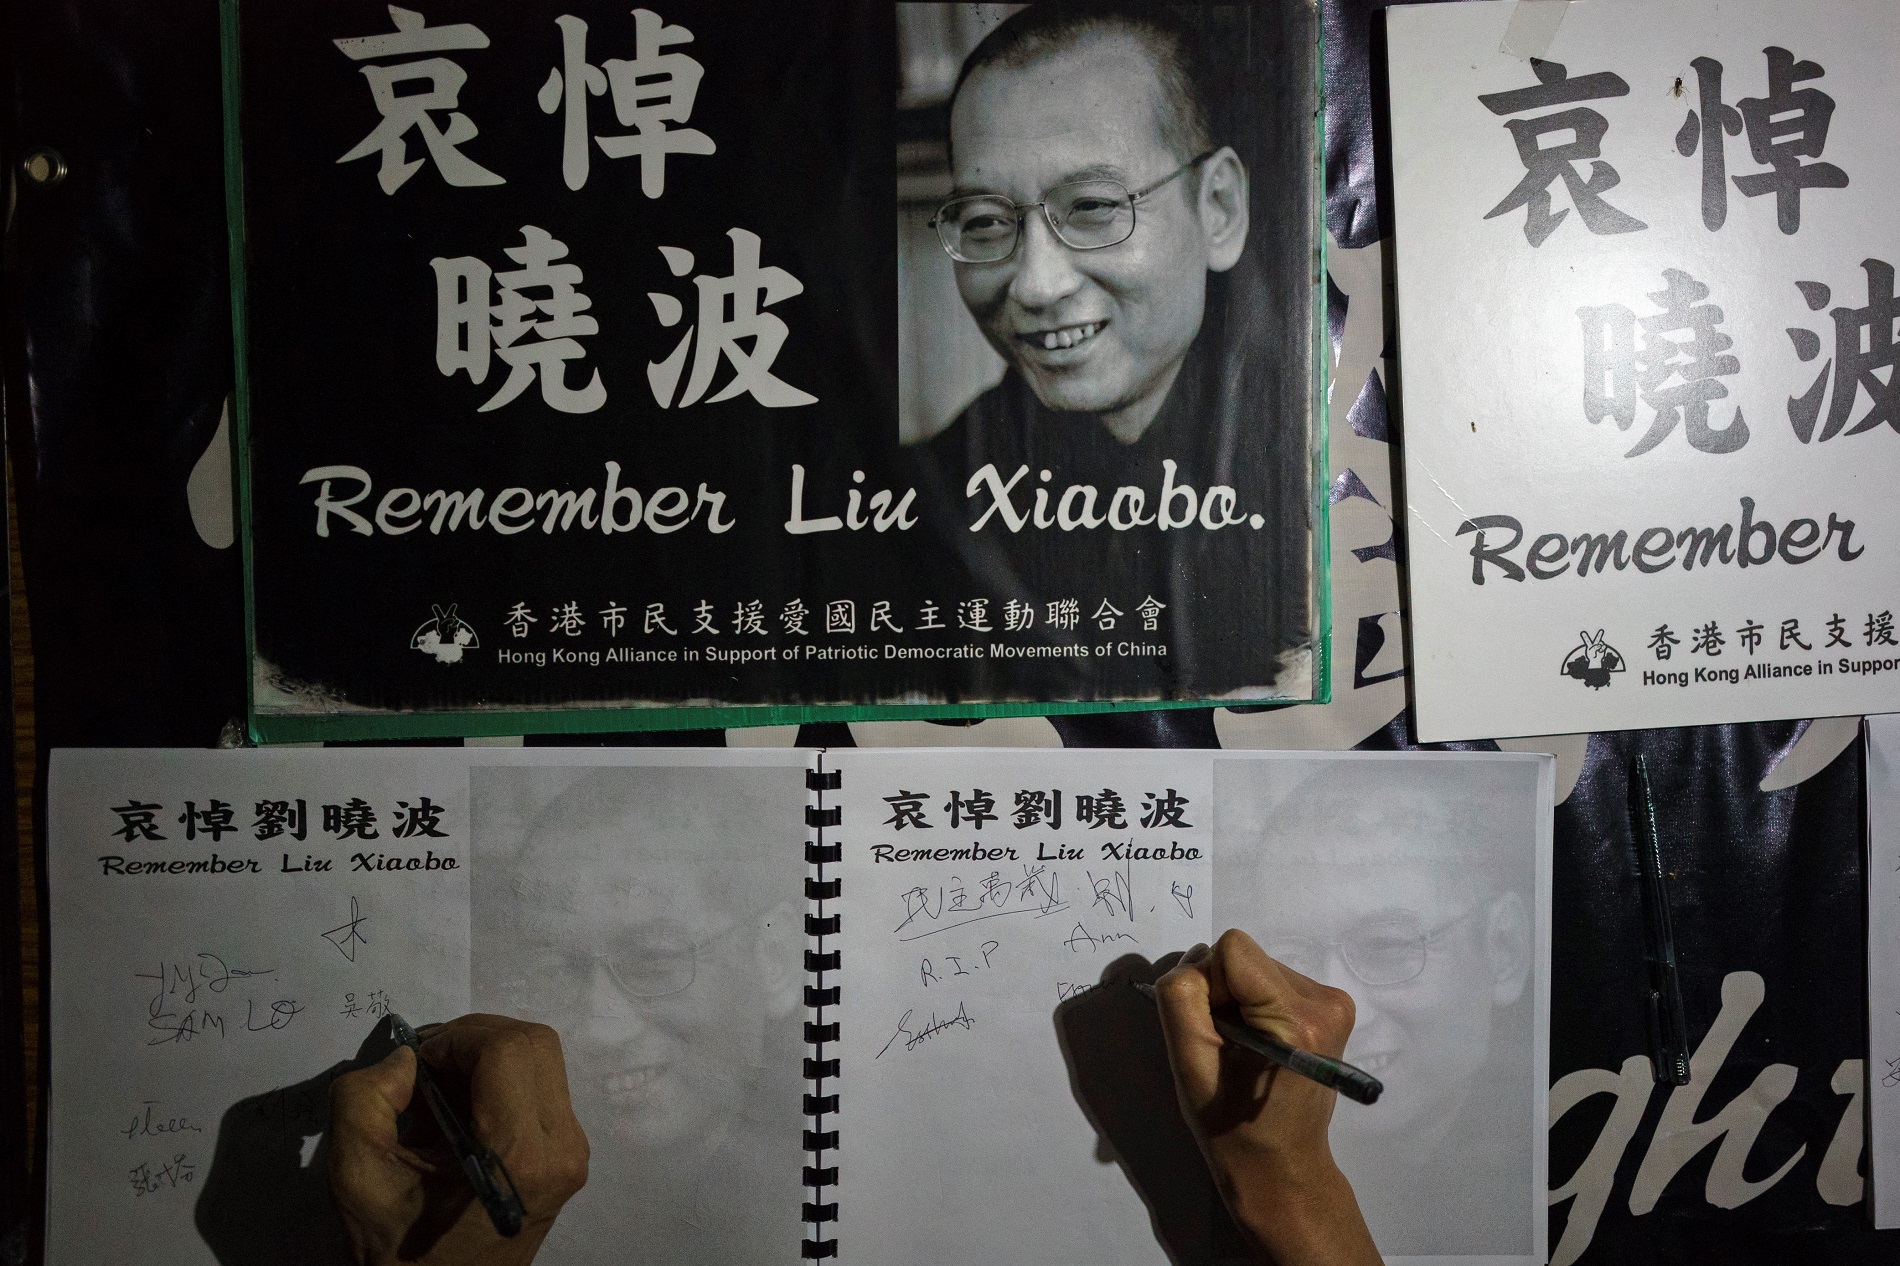 哀悼
曉波
Remember Liu Xiaobo.
香港市民支援愛國民主運動聯合會
Hong Kong Alliance in Support of Patriotic Democratic Movements of China
哀悼
曉波
Remember
香港市民支援
Hong Kong Alliance in Suppor
哀悼劉曉波
Remember Liu Xiaobo
SAM LO
吳敬
哀悼劉曉波
Remember Liu Xiaobo
民主萬歲
R.I.P
Ann